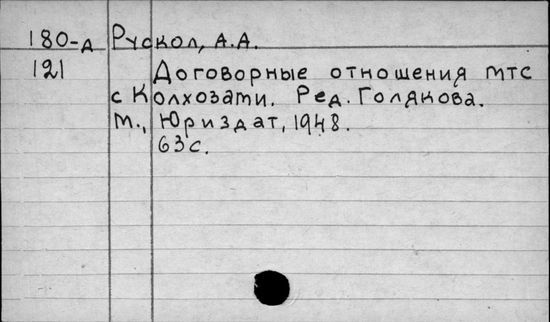 180-д Рускол, А.А.
121 Договорные отношения МТС
с Колхозами. Ред. Голякова.
М., Юриздат, 1948.
63с.